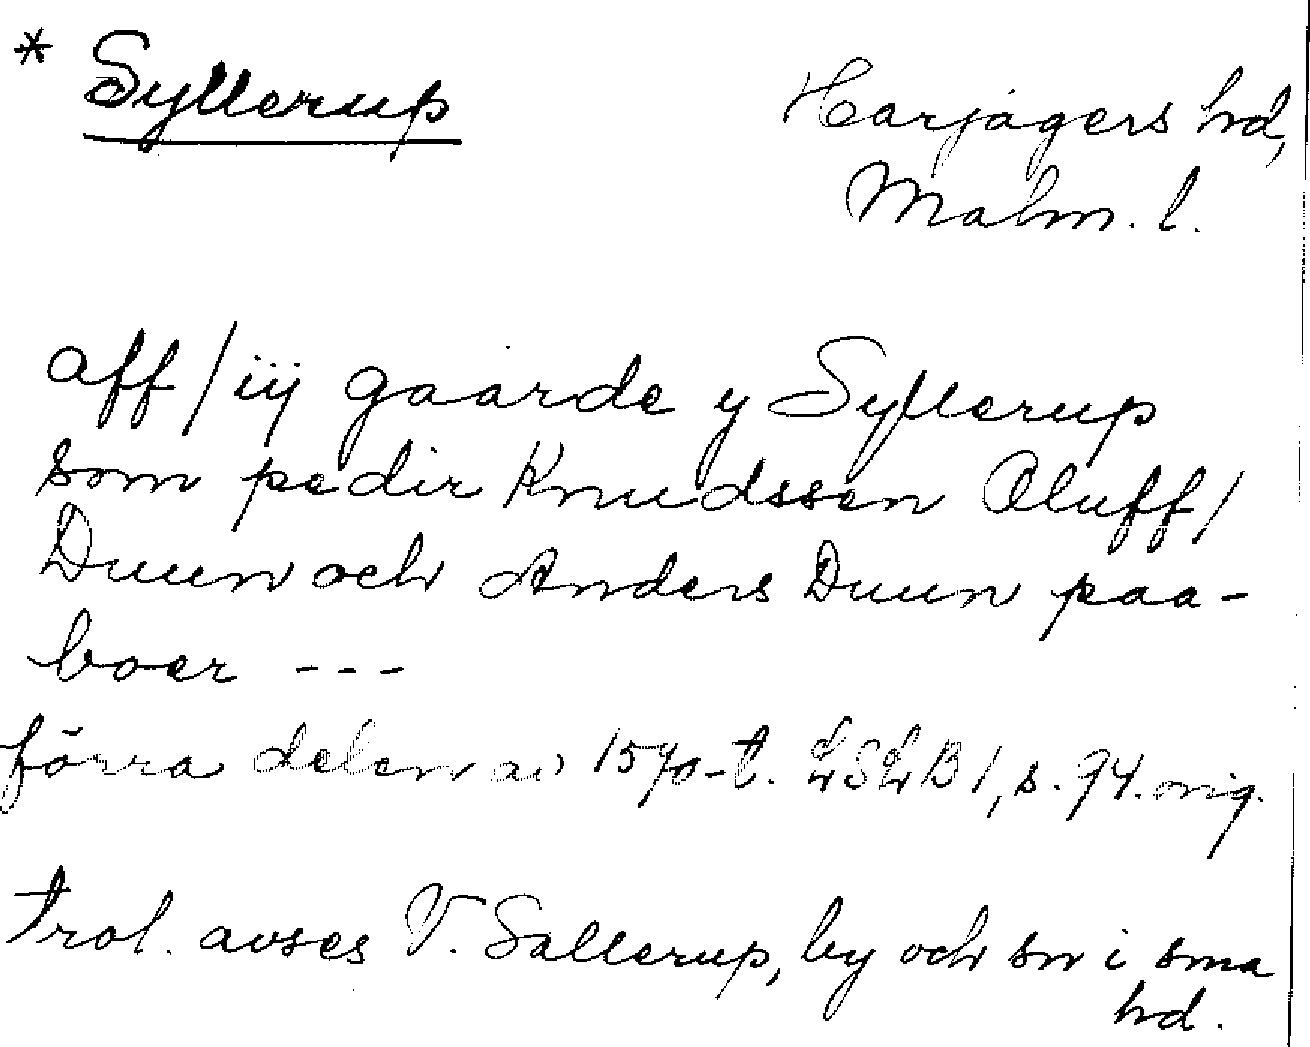 * Syllerup
Harjagers hd,
Malm. l.
aff / iij gaarde y Syllerup
som pedir Knudssen Oluff /
Duun och Anders Duun paa-
boer ---
förra delen av 1570-t. LSLB 1, s. 94. orig.
trol. avses V. Sallerup, by och sn i sma
hd.